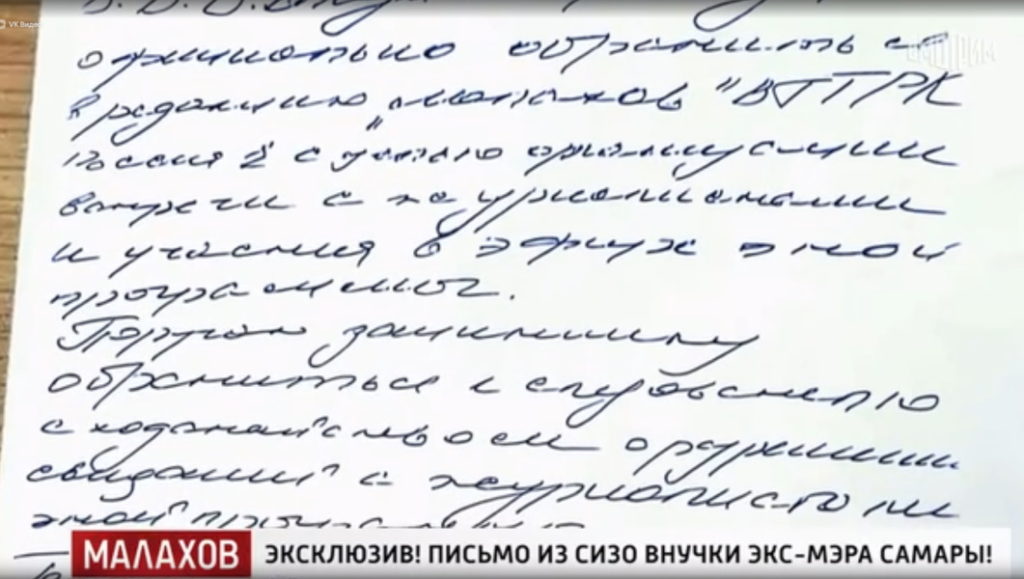 VK Видео
СМОТРИМ
официально обратиться
в редакцию „Малахов" ВГТРК
Россия 1 с
встречи с журналистами
и участия в эфирах этой
программы.
Прошу защитнику
обратиться к следователю
с ходатайством о разрешении
свиданий с журналистом
этой программы
МАЛАХОВ
ЭКСКЛЮЗИВ! ПИСЬМО ИЗ СИЗО ВНУЧКИ ЭКС-МЭРА САМАРЫ!